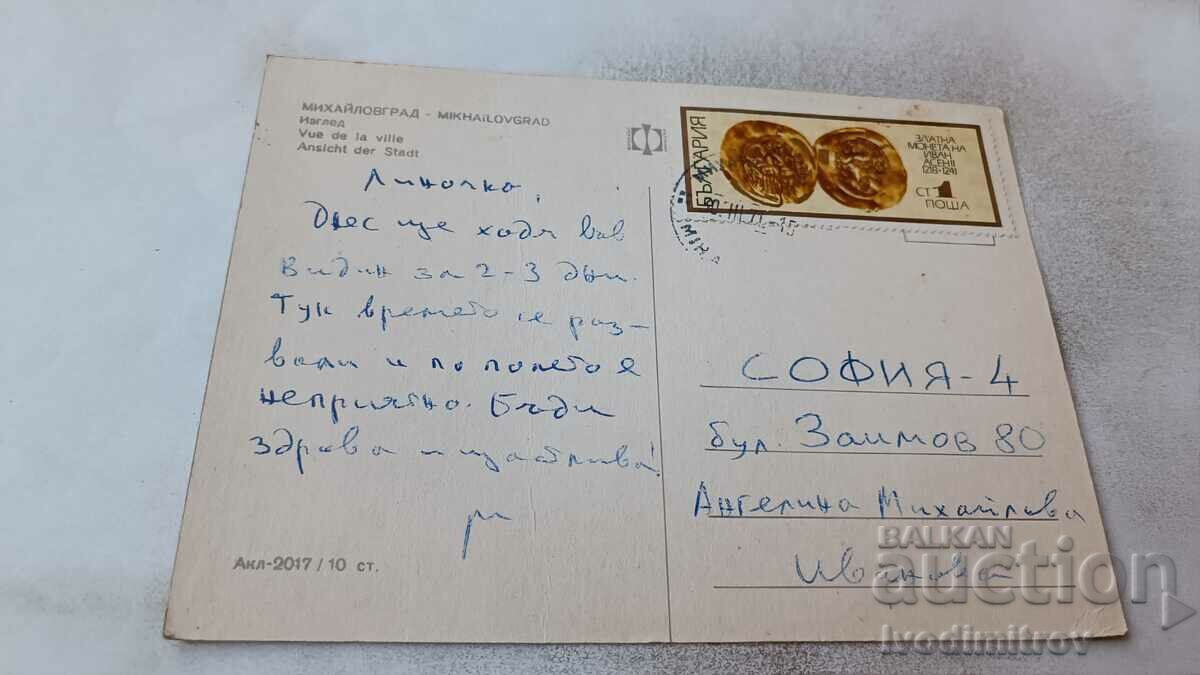 МИХАЙЛОВГРАД - MIKHAÏLOVGRAD
Изглед
Vue de la ville
Ansicht der Stadt
Линочка,
Днес ще ходя във
Видин за 2-3 дни.
Тук времето се раз-
вали и по полето е
неприятно. Бъди
здрава и щастлива!
Акл-2017 / 10 ст.
БЪЛГАРИЯ
ЗЛАТНА
МОНЕТА НА
ИВАН
АСЕН II
1218-1241
СТ 1
ПОЩА
СОФИЯ-4
бул. Заимов 80
Ангелина Михайлова
Иванова
BALKAN
auction
ivodimitrov